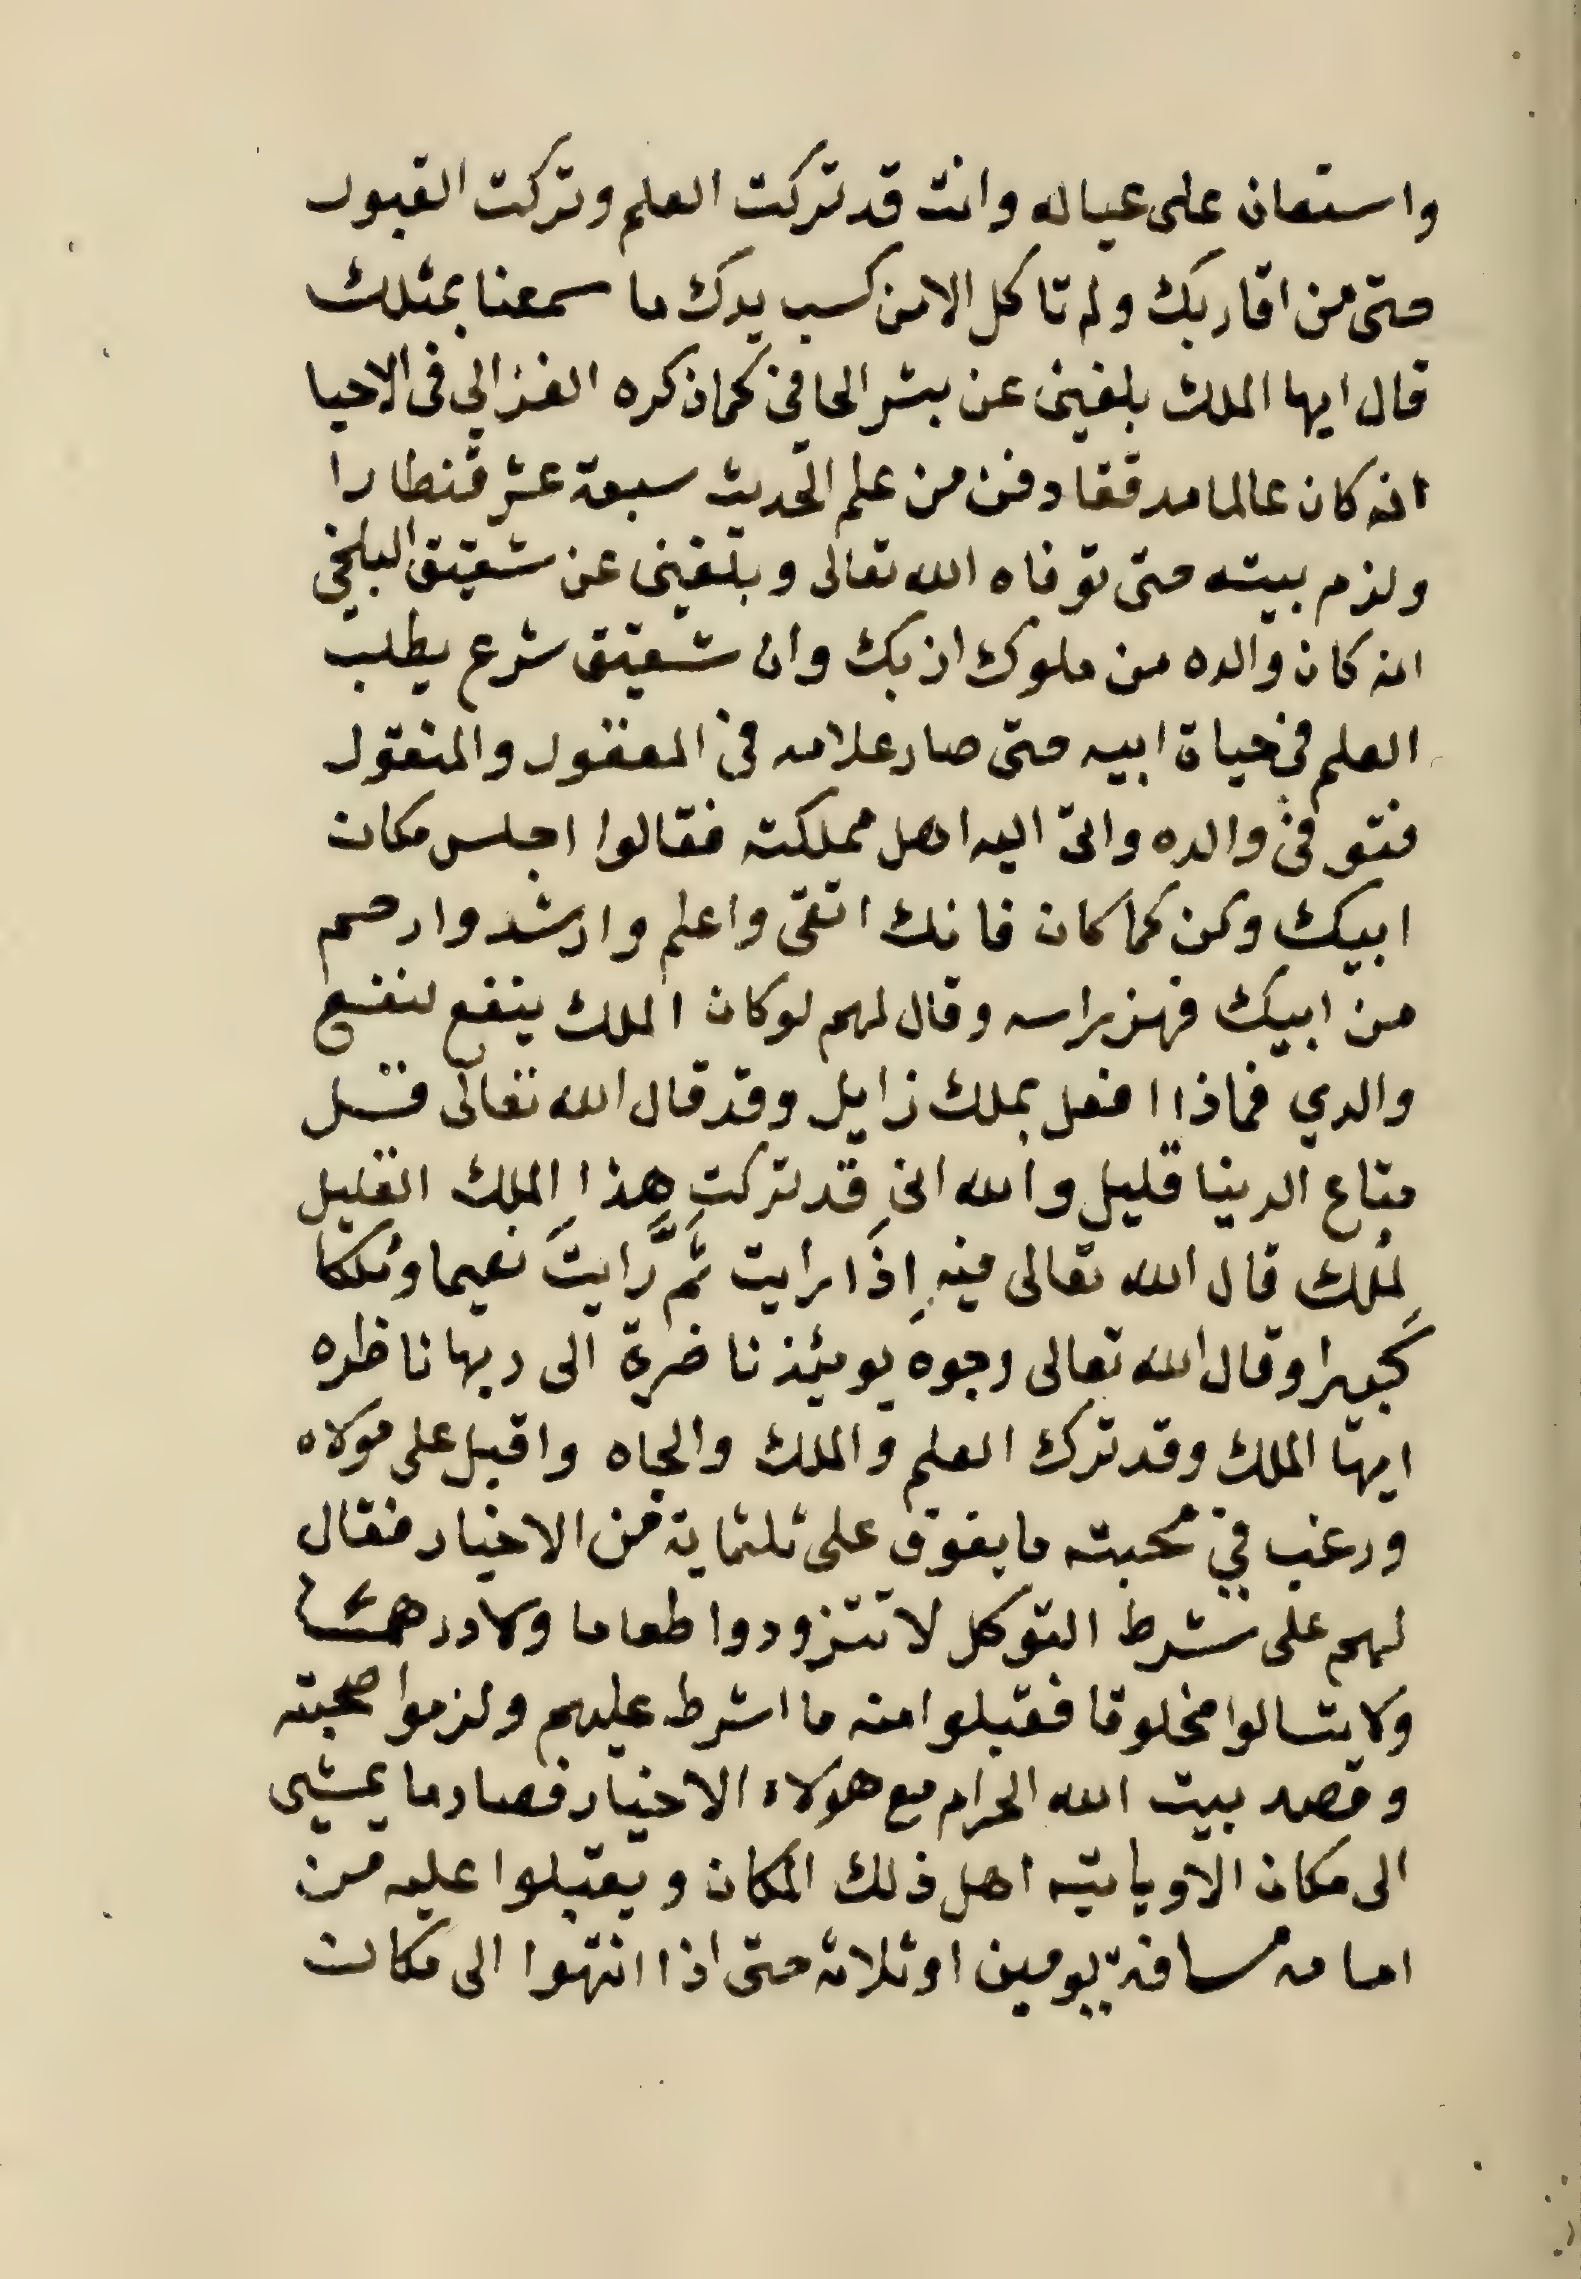 واستعان على عياله وانت قد تركت العلم وتركت القبول
حتى من اقاربك ولم تاكل الا من كسب يدك ما سمعنا بمثلك
قال ايها الملك بلغني عن بشر الحافي كما ذكره الغزالي في الاحيا
انه كان عالما مدققا دفن من علم الحديث سبعة عشر قنطارا
ولزم بيته حتى توفاه الله تعالى وبلغني عن شقيق البلخي
انه كان والده من ملوك ازبك وان شقيق شرع يطلب
العلم في حياة ابيه حتى صار علامه في المعقول والمنقول
فتوفي والده واتى اليه اهل مملكته فقالوا اجلس مكان
ابيك وكن كما كان فانك اتقى واعلم وارشد وارحم
من ابيك فهز براسه وقال لهم لو كان الملك ينفع لنفع
والدي فماذا افعل بملك زايل وقد قال الله تعالى قل
متاع الدينا قليل والله اني قد تركت هذا الملك القليل
لملك قال الله تعالى فيه اِذَا رايت ثَمَّ رَايتَ نعيما ومُلكا
كَبيرا وقال الله تعالى وجوه يومئذ ناضرة الى ربها ناظره
ايها الملك وقد ترك العلم والملك والجاه واقبل على مولاه
ورغب في محبته ما يفوق على ثلثماية من الاخيار فقال
لهم على شرط التوكل لا تتزودوا طعاما ولا درهما
ولا تسالوا مخلوقا فقبلوا منه ما اشرط عليهم ولزموا صحبته
وقصد بيت الله الحرام مع هولاء الاخيار فصار ما يمشي
الى مكان الا وياتيه اهل ذلك المكان ويقبلوا عليه من
امامه مسافة يومين او ثلاثه حتى اذا انتهوا الى مكان